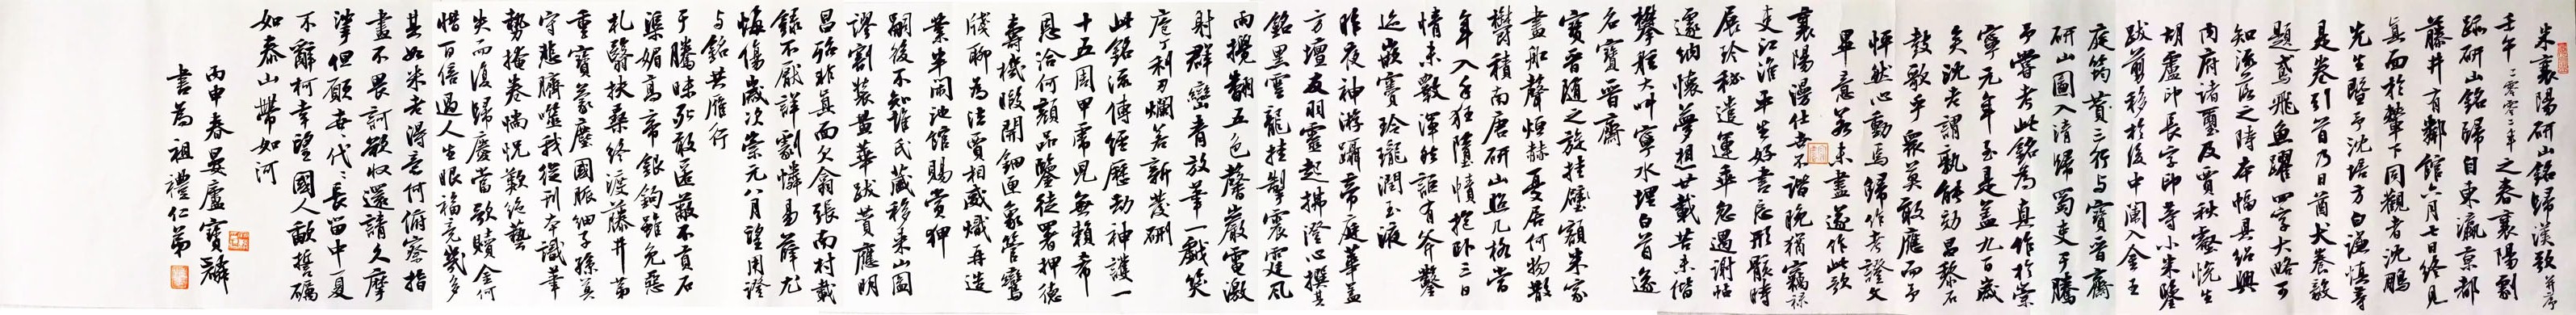 米襄陽研山銘歸漢歌并序
壬午二零零二年之春襄陽劇
跡研山銘歸自東瀛京都
藤井有鄰館六月七日終見
真面於輦下同觀者沈鵬
先生暨予沈培方白謙慎等
是卷引首乃日酋犬養毅
題鳶飛魚躍四字大略可
知淪落之時本幅具紹興
內府諸璽及賈秋壑悅生
胡盧印長字印等小米鑒
跋剪移於後中闌入金王
庭筠贊三行与寶晉齋
研山圖入清歸蜀吏于騰
予嘗考此銘為真作於崇
寧元年至是蓋九百歲
矣沈老謂孰能効昌黎石
鼓歌乎眾莫敢應而予
怦然心動焉歸作考證文
畢意若未盡遂作此歌
襄陽漫仕世不諧晚猶竊祿
走江淮平生好書忘形骸時
展珍秘遣運乖忽遇謝帖
遂納懷夢想廿載苦未偕
攀桅大叫寧水埋白首遂
名寶晉齋
寶晉隨之旋挂壁額米家
書船聲烜赫憂居何物散
鬱積南唐研山照几格嘗
年入手狂墮幘抱臥三日
情未斁渾然詎有斧鑿
迹嵌竇玲瓏潤玉液
昨夜神游躡帝庭華蓋
方壇友羽靈起拂澄心撰其
銘黑雲龍挂掣震霆風
雨攪翻五色磬巖電激
射群巒青放筆一戲笑
庖丁利刃爛若新發硎
此銘流傳經歷劫神護一
十五周甲虎兒無賴希
恩洽何顏品鑒徒署押德
壽機暇開鈿匣象管鸞
牋聊為法賈相威熾再造
業半閑池館賜賞狎
嗣後不知誰氏藏移來山圖
謬割裝黃華跋贊應明
昌殆非真而欠翁張南村載
錄不厭詳劇憐易薛尤
悔傷歲次崇元八月望用證
与銘共雁行
于騰昧死敢匿蔽不貢石
渠媚高帝銀鉤雖免惡
札翳扶桑終渡藤井第
重寶蒙塵國脈細子孫莫
守悲臍噬我從刊本識筆
勢掩卷惝怳歎絕藝
失而復歸慶當歌贖金何
惜百倍過人生眼福竟幾多
其如米老得意何俯察指
畫不畏訶欲收還請久摩
挲但願世代〻長留中夏
不辭柯幸望國人歃誓礪
如泰山帶如河
丙申春晏廬寶麟
書為祖禮仁弟